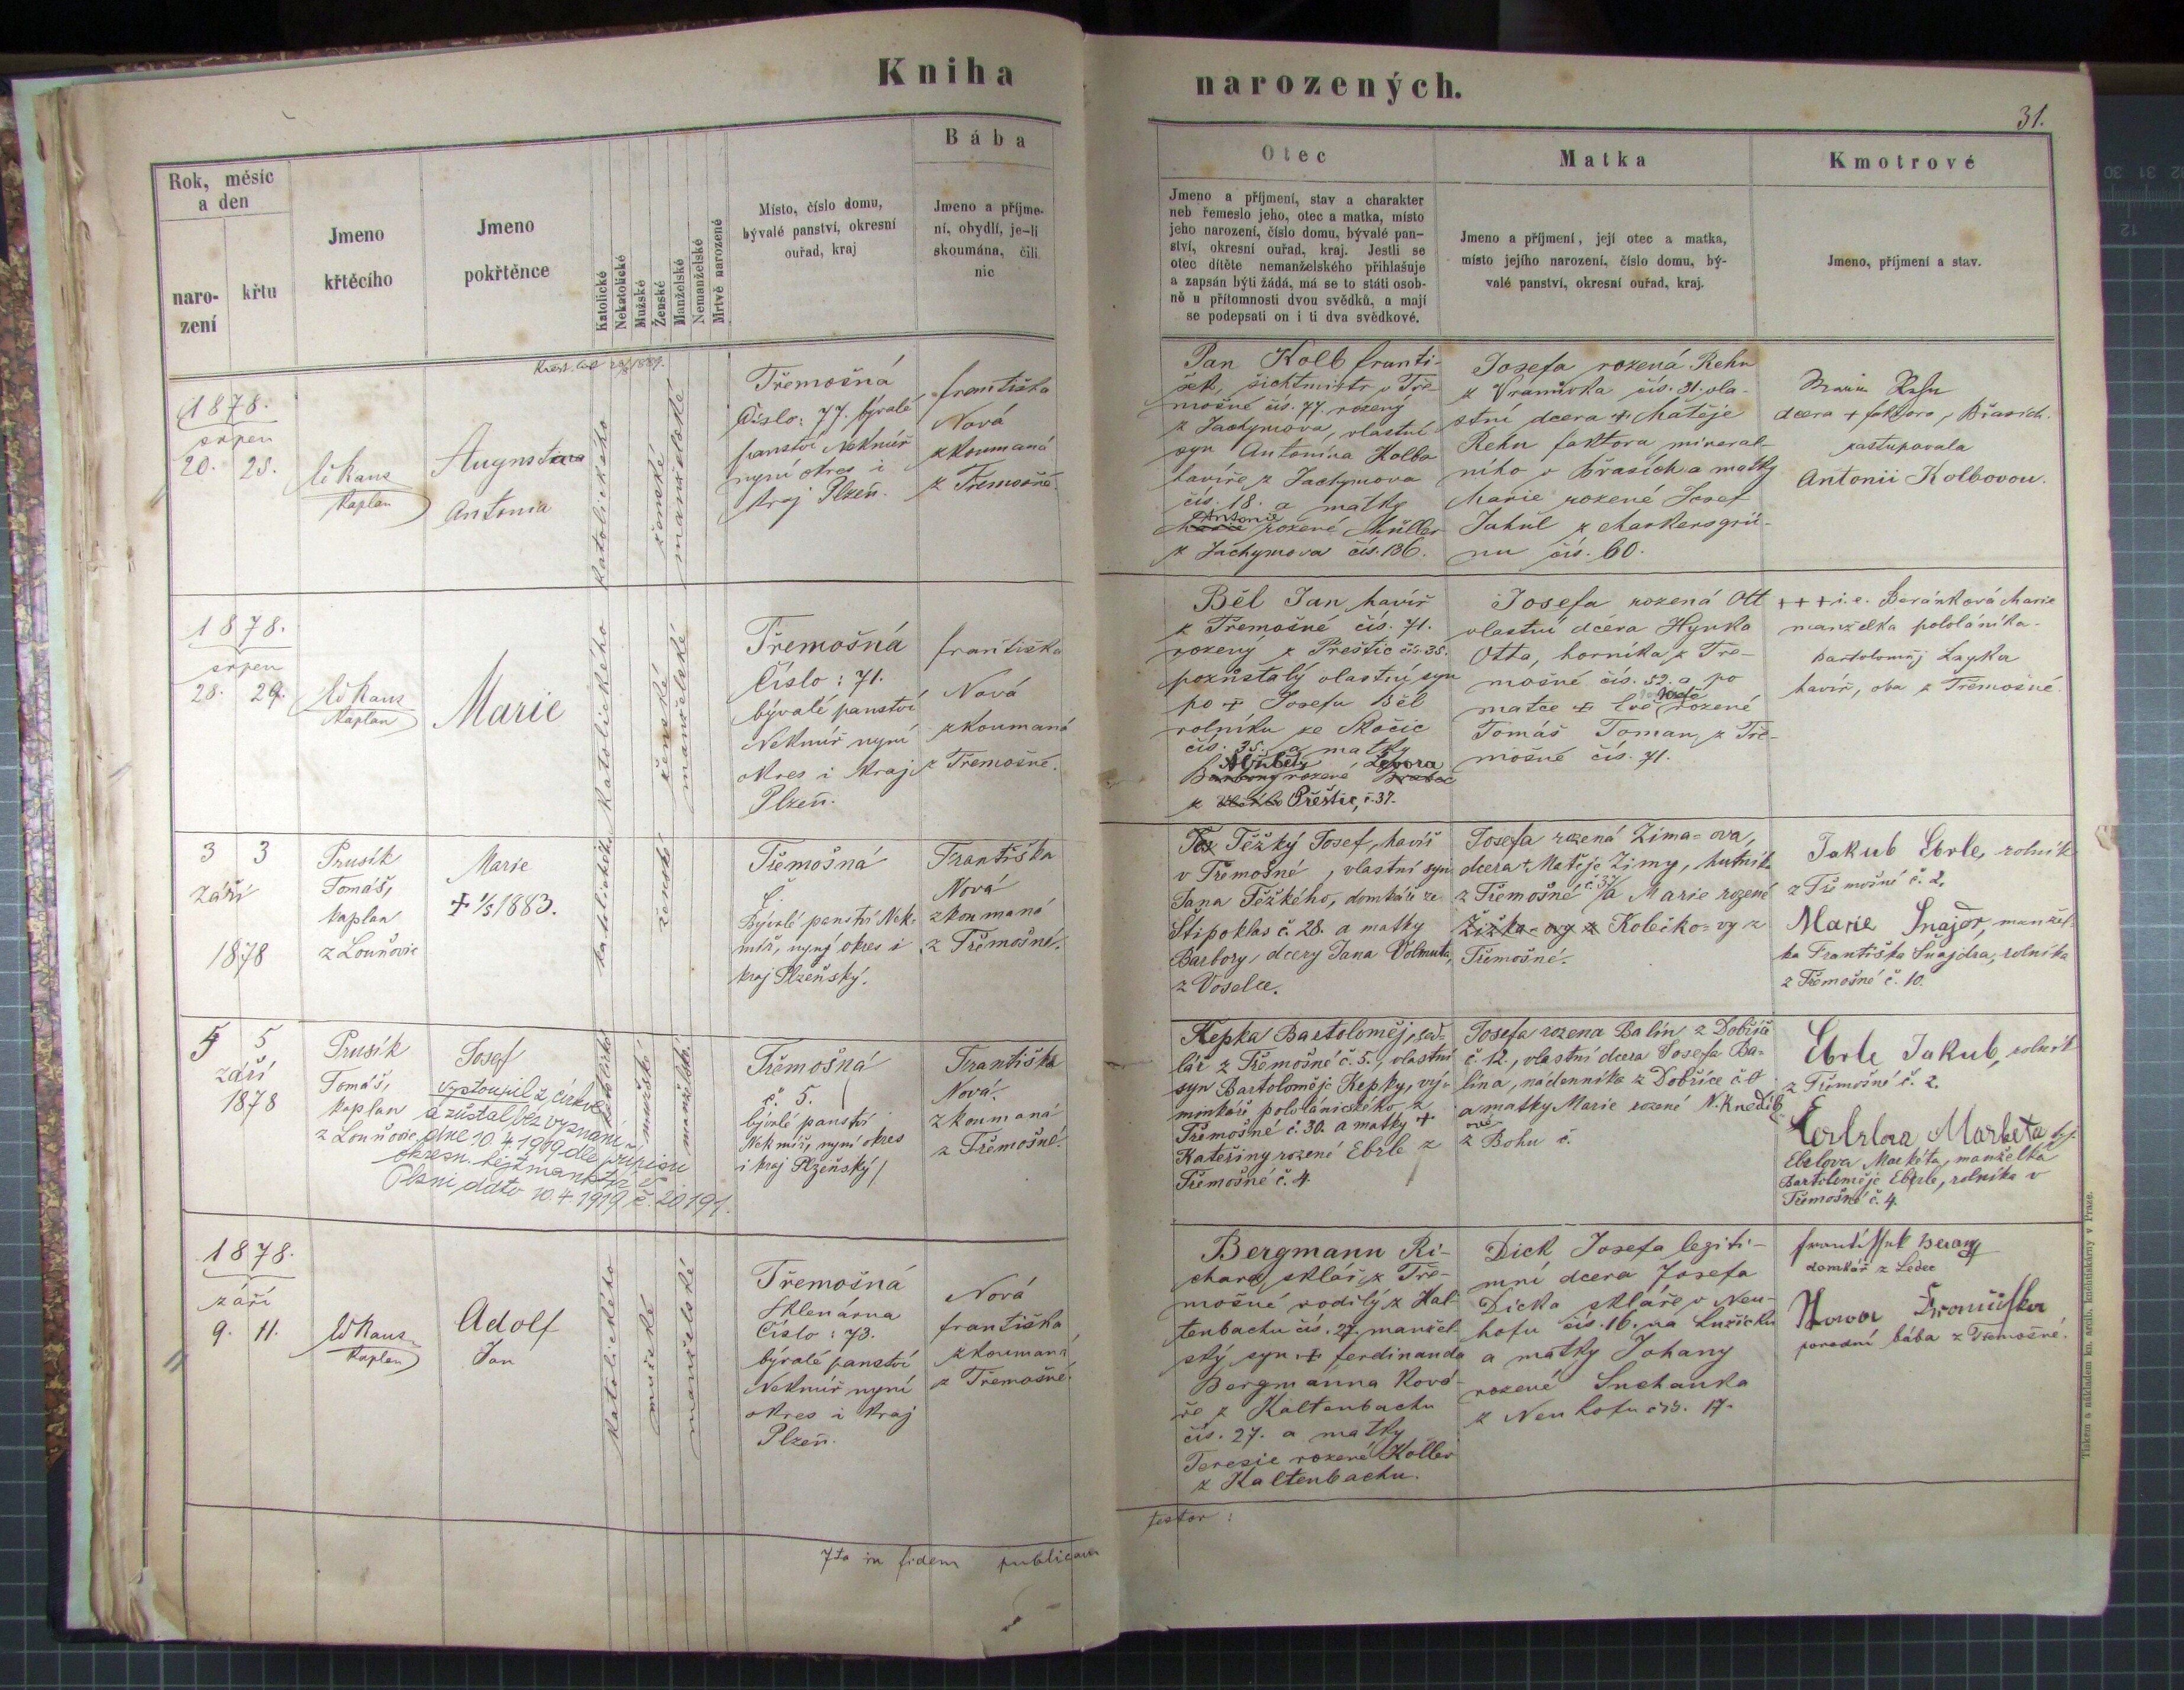 Kniha
narozených.
31.
Rok, měsíc
a den
naro-
zení
křtu
Jmeno
křtěcího
Jmeno
pokřtěnce
Katolické
Nekatolické
Mužské
Ženské
Manželské
Nemanželské
Mrtvě narozené
Místo, číslo domu,
bývalé panství, okresní
ouřad, kraj
Bába
Jmeno a příjme-
ní, obydlí, je-li
skoumána, čili
nic
Otec
Jmeno a příjmení, stav a charakter
neb řemeslo jeho, otec a matka, místo
jeho narození, číslo domu, bývalé pan-
ství, okresní ouřad, kraj. Jestli se
otec dítěte nemanželského přihlašuje
a zapsán býti žádá, má se to státi osob-
ně u přítomnosti dvou svědků, a mají
se podepsati on i ti dva svědkové.
Matka
Jmeno a příjmení, její otec a matka,
místo jejího narození, číslo domu, bý-
valé panství, okresní ouřad, kraj.
Kmotrové
Jmeno, příjmení a stav.
1878.
srpen
20. 25.
Kaplan
Augusta
Antonia
katolického
ženské
manželské
Třemošná
Číslo: 77. bývalé
panství Nekmíř
nyní okres i
kraj Plzeň.
františka
Nová
zkoumaná
z Třemošné.
Pan Kolb franti-
šek, šichtmistr v Tře-
mošné čís. 77. rozený
z Jachymova, vlastní
syn Antonína Kolba
havíře z Jachymova
čís. 18. a matky
Antonie rozené Müller
z Jáchymova čís. 136.
Josefa rozená Rehn
z Vranůvka čís. 31. vla-
stní dcera + Matěje
Rehn faktora mineral-
ního v Břasích a matky
Marie rozené Josef
Jahúl z Markersgrü-
nu čís. 60.
Marie Rehn
dcera + faktora z Břasích.
zastupovala
Antonii Kolbovou.
1878.
srpen
28. 29.
Kaplan
Marie
katolického
ženské
manželské
Třemošná
Číslo: 71.
bývalé panství
Nekmíř nyní
okres i kraj
Plzeň.
františka
Nová
zkoumaná
z Třemošné.
Běl Jan havíř
z Třemošné čís. 71.
rozený z Přeštic čís. 35.
pozůstalý vlastní syn
po + Josefu Běl
rolníku ze Skočic
čís. 35. a matky
Alžběty Levora
Barbory rozené
z Přeštic, č. 37.
Josefa rozená Ott
vlastní dcera Hynka
Otta, horníka z Tře-
mošné čís. 52. a po
matce + Evě rozené
Tomáš Toman z Tře-
mošné čís. 71.
+ + + i. e. Beránková Marie
manželka pololáníka.
Bartoloměj Layka
havíř, oba z Třemošné.
3 3
září
1878
Prusík
Tomáš,
kaplan
z Louňovic
Marie
+ 1/5 1883.
katolického
ženské
Třemošná
č.
Bývalé panství Nek-
míř, nyný okres i
kraj Plzeňský.
Františka
Nová
zkoumaná
z Třemošné.
Těžký Josef, havíř
v Třemošné, vlastní syn
Jana Těžkého, domkáře ze
Štipoklas č. 28. a matky
Barbory, dcery Jana Volmuta,
z Voselce.
Josefa rozená Zima-ova,
dcera + Matěje Zimy, hutníka
z Třemošné a Marie rozené
Žižka-ovy z Kolečko-vy z
Třemošné.
Jakub Ebrle, rolník
z Třemošné č. 2.
Marie Šnajdr, manžel-
ka Františka Šnajdra, rolníka
z Třemošné č. 10.
5 5
září
1878
Prusík
Tomáš,
kaplan
z Louňovic
Josef
vystoupil z církve
a zůstal bez vyznání
dne 10. 4. 1919 dle přípisu
okresn. hejtmanství v
Plzni ddto 10. 4. 1919 č. 20.191.
katolické
mužské
manželské.
Třemošná
č. 5.
bývalé panství
Nekmíř, nyní okres
i kraj Plzeňský
Františka
Nová.
zkoumaná
z Třemošné.
Kepka Bartoloměj, sed-
lář z Třemošné č. 5., vlastní
syn Bartoloměje Kepky, výj-
minkáře pololánického z
Třemošné č. 30. a matky +
Kateřiny rozené Ebrle z
Třemošné č. 4.
Josefa rozena Balín z Dobříče
č. 12., vlastní dcera Josefa Ba-
lína, nádenníka z Dobříce
a matky Marie rozené N. Knedlí-
ové
z Bohu č.
Ebrle Jakub, rolník
z Třemošné č. 2.
Markéta
Ebrlova Markéta, manželka
Bartoloměje Ebrle, rolníka v
Třemošné č. 4.
1878.
září
9. 11.
Kaplan
Adolf
Jan
katolického
mužské
manželské
Třemošná
Sklenárna
Číslo: 73.
bývalé panství
Nekmíř nyní
okres i kraj
Plzeň.
Nová
františka
zkoumaná
z Třemošné.
Bergmann Ri-
chard, sklář z Tře-
mošné rodilý z Kal-
tenbachu čís. 27. manžel-
ský syn + ferdinanda
Bergmanna Ková-
ře z Kaltenbachu
čís. 27. a matky
Teresie rozené Koller
z Kaltenbachu.
Dick Josefa legiti-
mní dcera Josefa
Dicka skláře v Neu-
hofu čís. 16. na Lužicku
a matky Johany
rozené Suchanka
z Neuhofu čís. 17.
domkář z Ledec
porodní bába z Třemošné.
Ita in fidem publicam
testor:
Tiskem a nákladem kn. arcib. knihtiskárny v Praze.